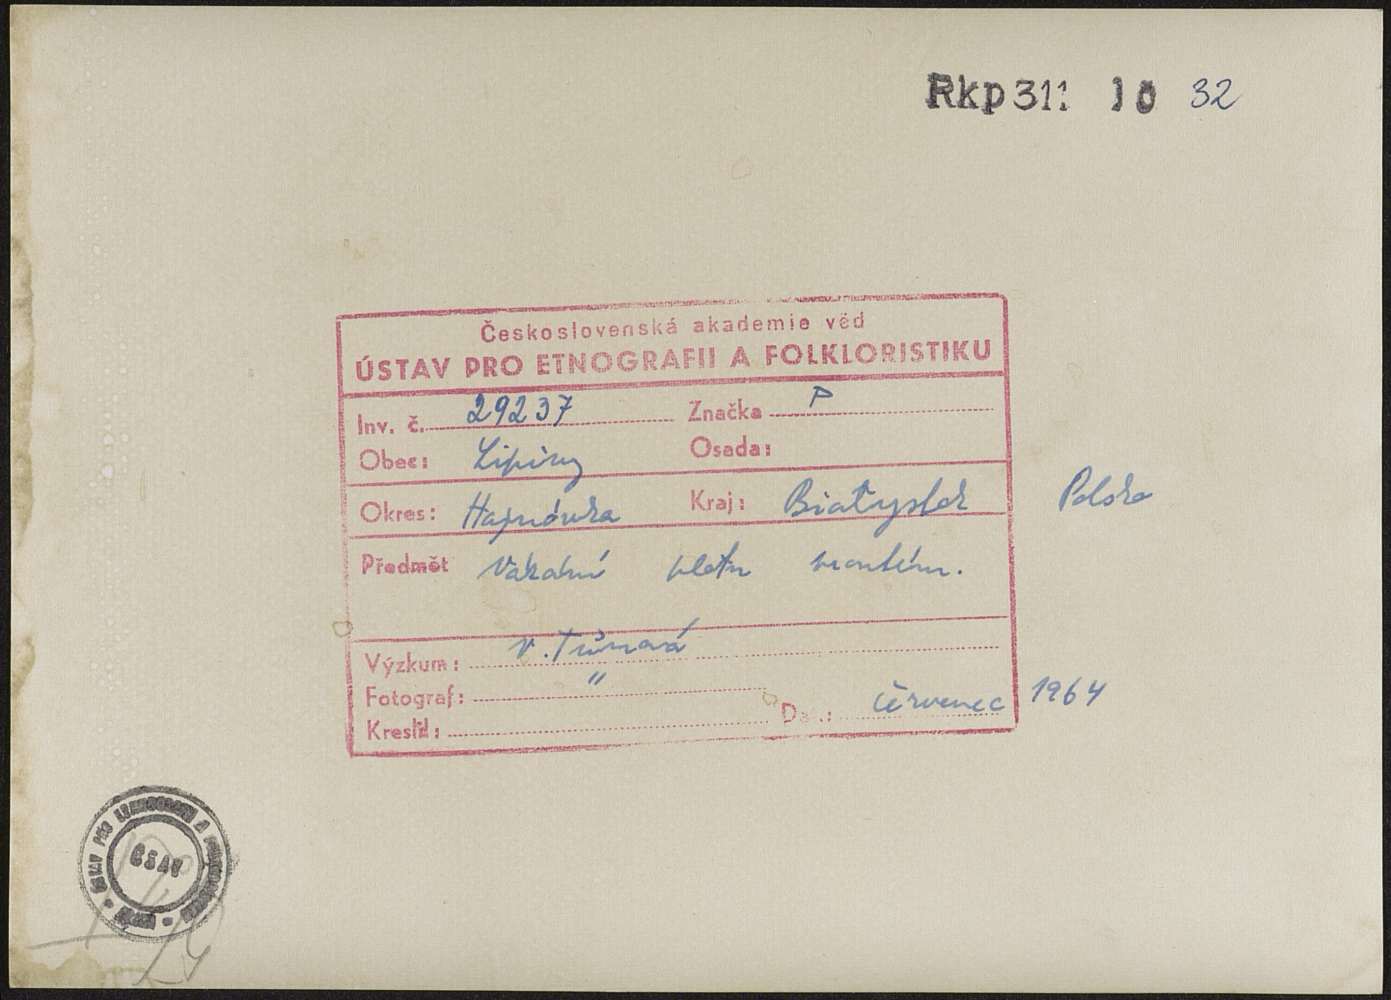 Rkp 311 10 32
Československá akademie věd
ÚSTAV PRO ETNOGRAFII A FOLKLORISTIKU
Inv. č. 29237 Značka P
Obec: Lipiny Osada:
Okres: Hajnówka Kraj: Białystok Polsko
Předmět Vázání pletu
Výzkum: V. Tůmová
Fotograf: "
Kreslil: Dat.: červenec 1964
ÚSTAV PRO ETNOGRAFII A FOLKLORISTIKU
ČSAV